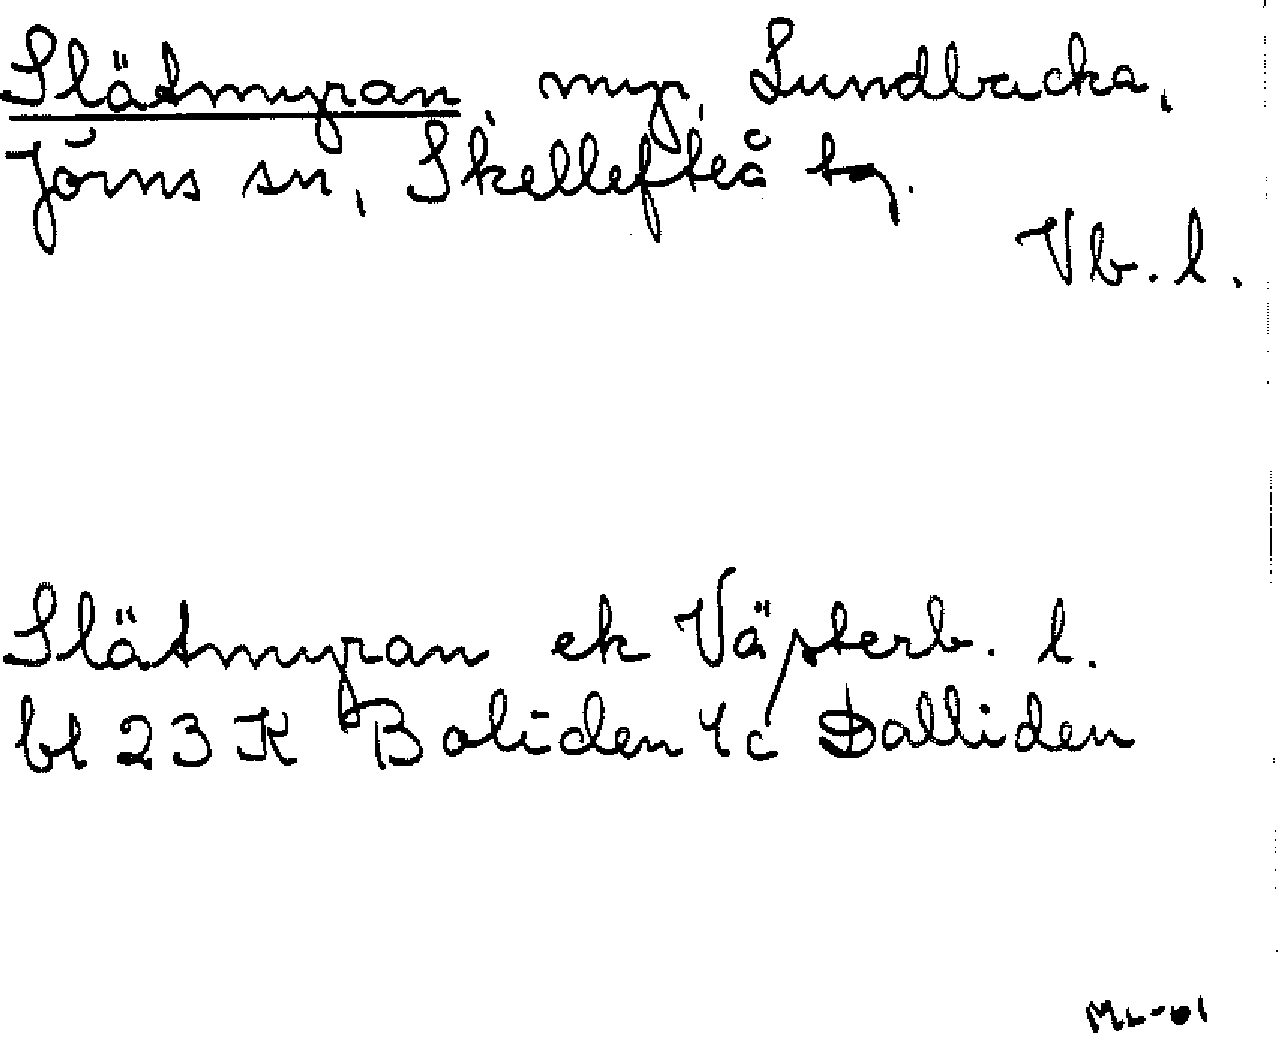 Slätmyran, myr, Lundbacka,
Jörns sn, Skellefteå tg.
Vb. l.
Slätmyran ek Västerb. l.
bl 23 K Boliden 4c Dalliden